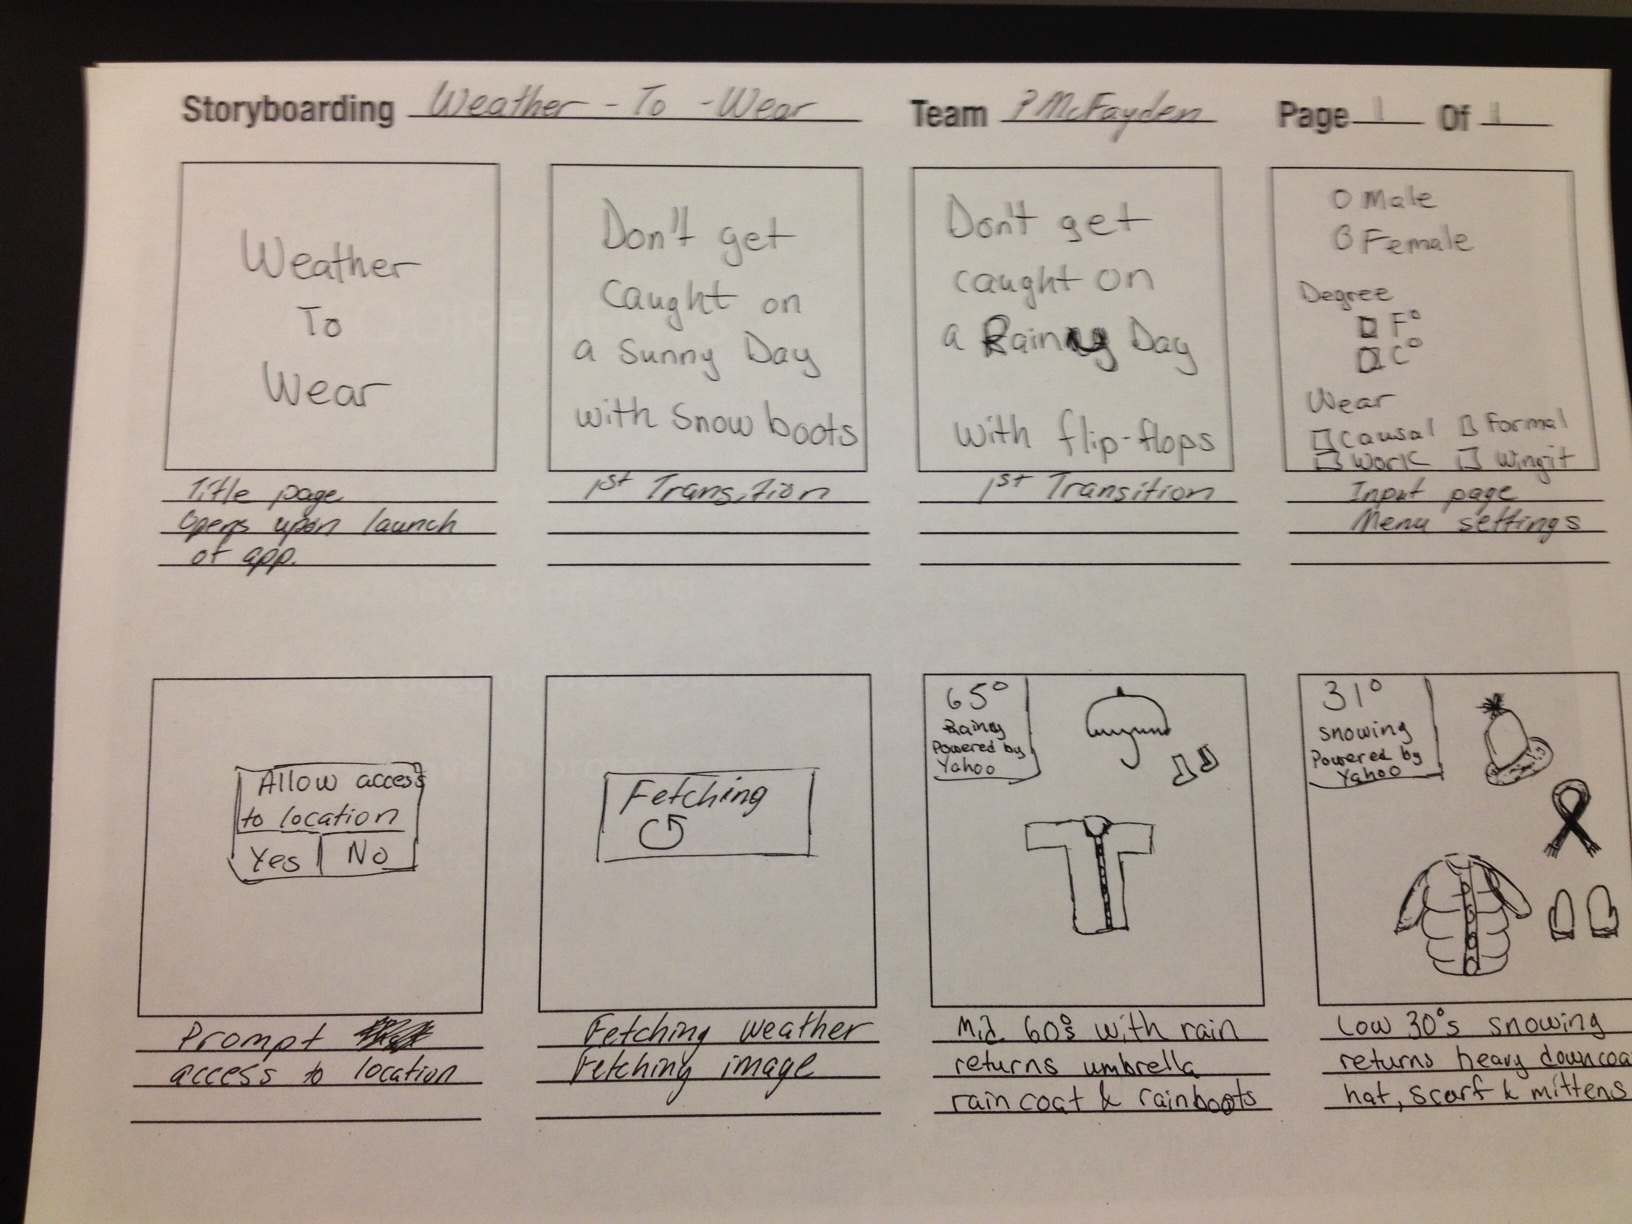 Storyboarding Weather-To-Wear Team P.McFayden Page 1 Of 1
Weather
To
Wear
Title page
Opens upon launch
of app.
Don't get
caught on
a sunny Day
with Snow boots
1st Transition
Don't get
caught on
a Rainy Day
with flip-flops
1st Transition
Male
Female
Degree
F°
C°
Wear
Causal Formal
Work wingit
Input page
Menu settings
Allow access
to location
Yes No
Prompt
access to location
Fetching
Fetching weather
Fetching image
65°
Rainy
Powered by
Yahoo
Mid 60°s with rain
returns umbrella
raincoat & rainboots
31°
Snowing
Powered by
Yahoo
Low 30°s snowing
returns heavy downcoa
hat, scarf & mittens